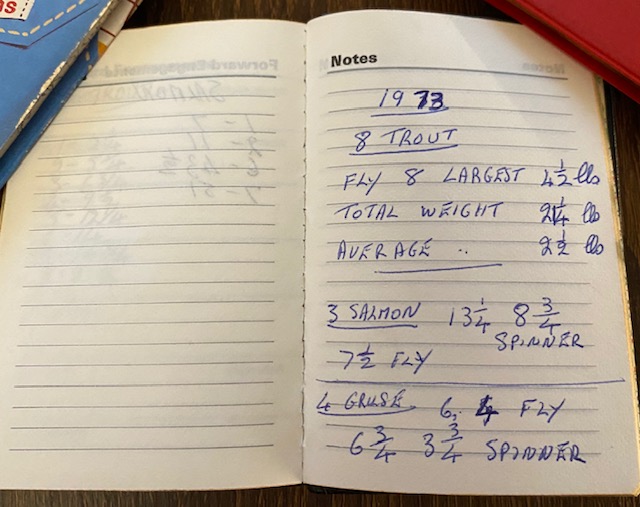 Notes
1973
8 TROUT
FLY 8 LARGEST 4 1/2 lbs
TOTAL WEIGHT 21 1/4 lbs
AVERAGE .. 2 1/2 lbs
3 SALMON 13 1/4 8 3/4
SPINNER
7 1/2 FLY
4 GRILSE 6, 4 FLY
6 3/4 3 3/4 SPINNER